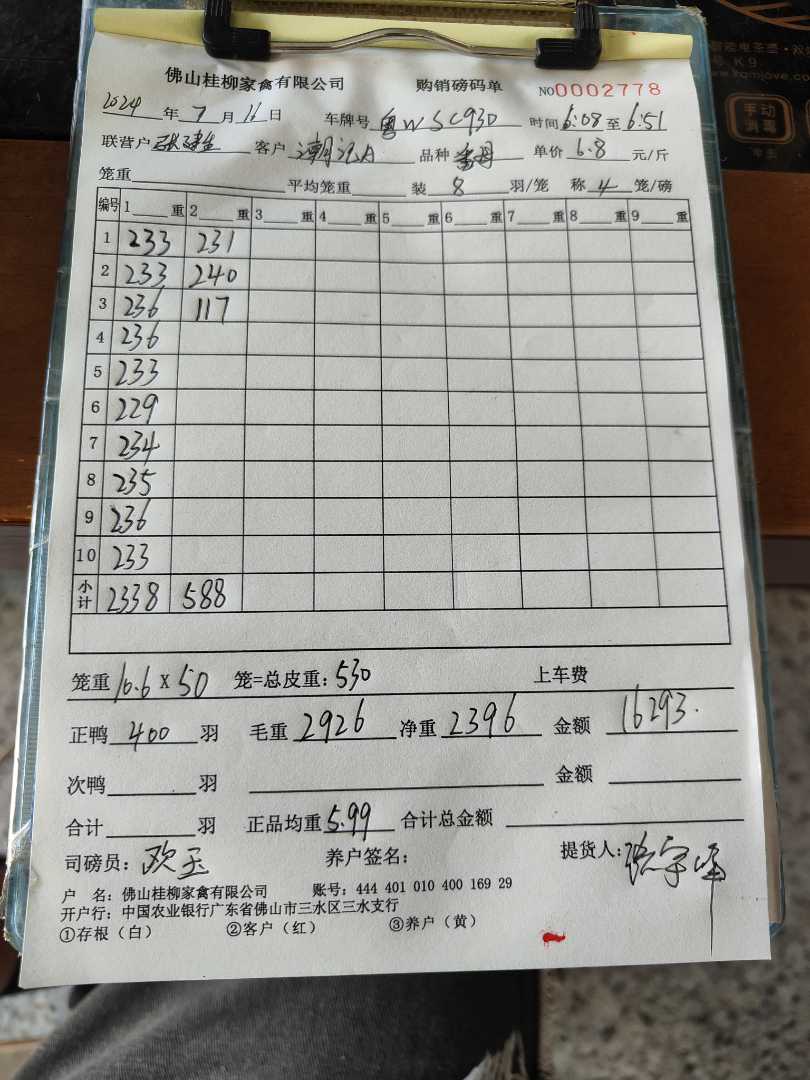 智能电茶盏·观
号 K9
www.kamjove.com
手动
消毒
佛山桂柳家禽有限公司 购销磅码单 NO0002778
2024年7月11日 车牌号 粤W5C930 时间6:08至6:51
联营户 客户 潮记A 品种 单价6.8元/斤
笼重 平均笼重 装8羽/笼 称4笼/磅
编号 1重 2重 3重 4重 5重 6重 7重 8重 9重
1 233 231
2 233 240
3 236 117
4 236
5 233
6 229
7 234
8 235
9 236
10 233
小计 2338 588
笼重10.6x50 笼=总皮重:530 上车费
正鸭400羽 毛重2926 净重2396 金额16293.
次鸭羽 金额
合计羽 正品均重5.99 合计总金额
司磅员:欧玉 养户签名: 提货人:
户 名:佛山桂柳家禽有限公司 账号:444 401 010 400 169 29
开户行:中国农业银行广东省佛山市三水区三水支行
①存根(白) ②客户(红) ③养户(黄)